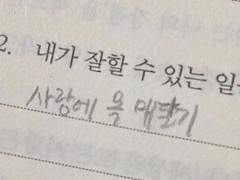 2. 내가 잘할 수 있는 일
사랑에 목 매달기